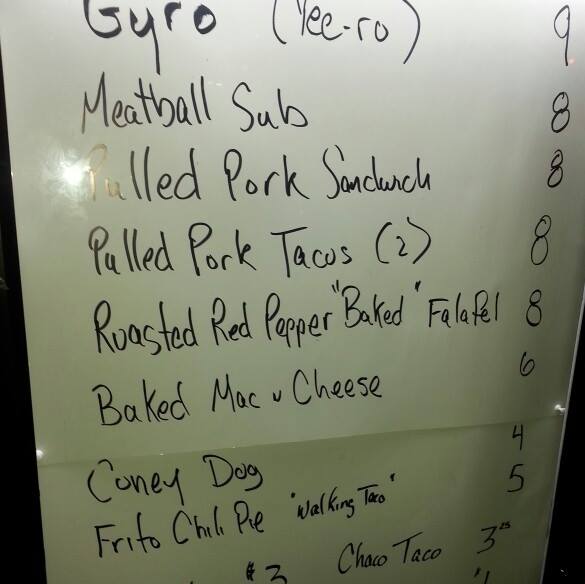 Gyro (Yee-ro) 9
Meatball Sub 8
Pulled Pork Sandwich 8
Pulled Pork Tacos (2) 8
Roasted Red Pepper "Baked" Falafel 8
Baked Mac n Cheese 6
Coney Dog 4
Frito Chili Pie "Walking Taco" 5
Choco Taco 3